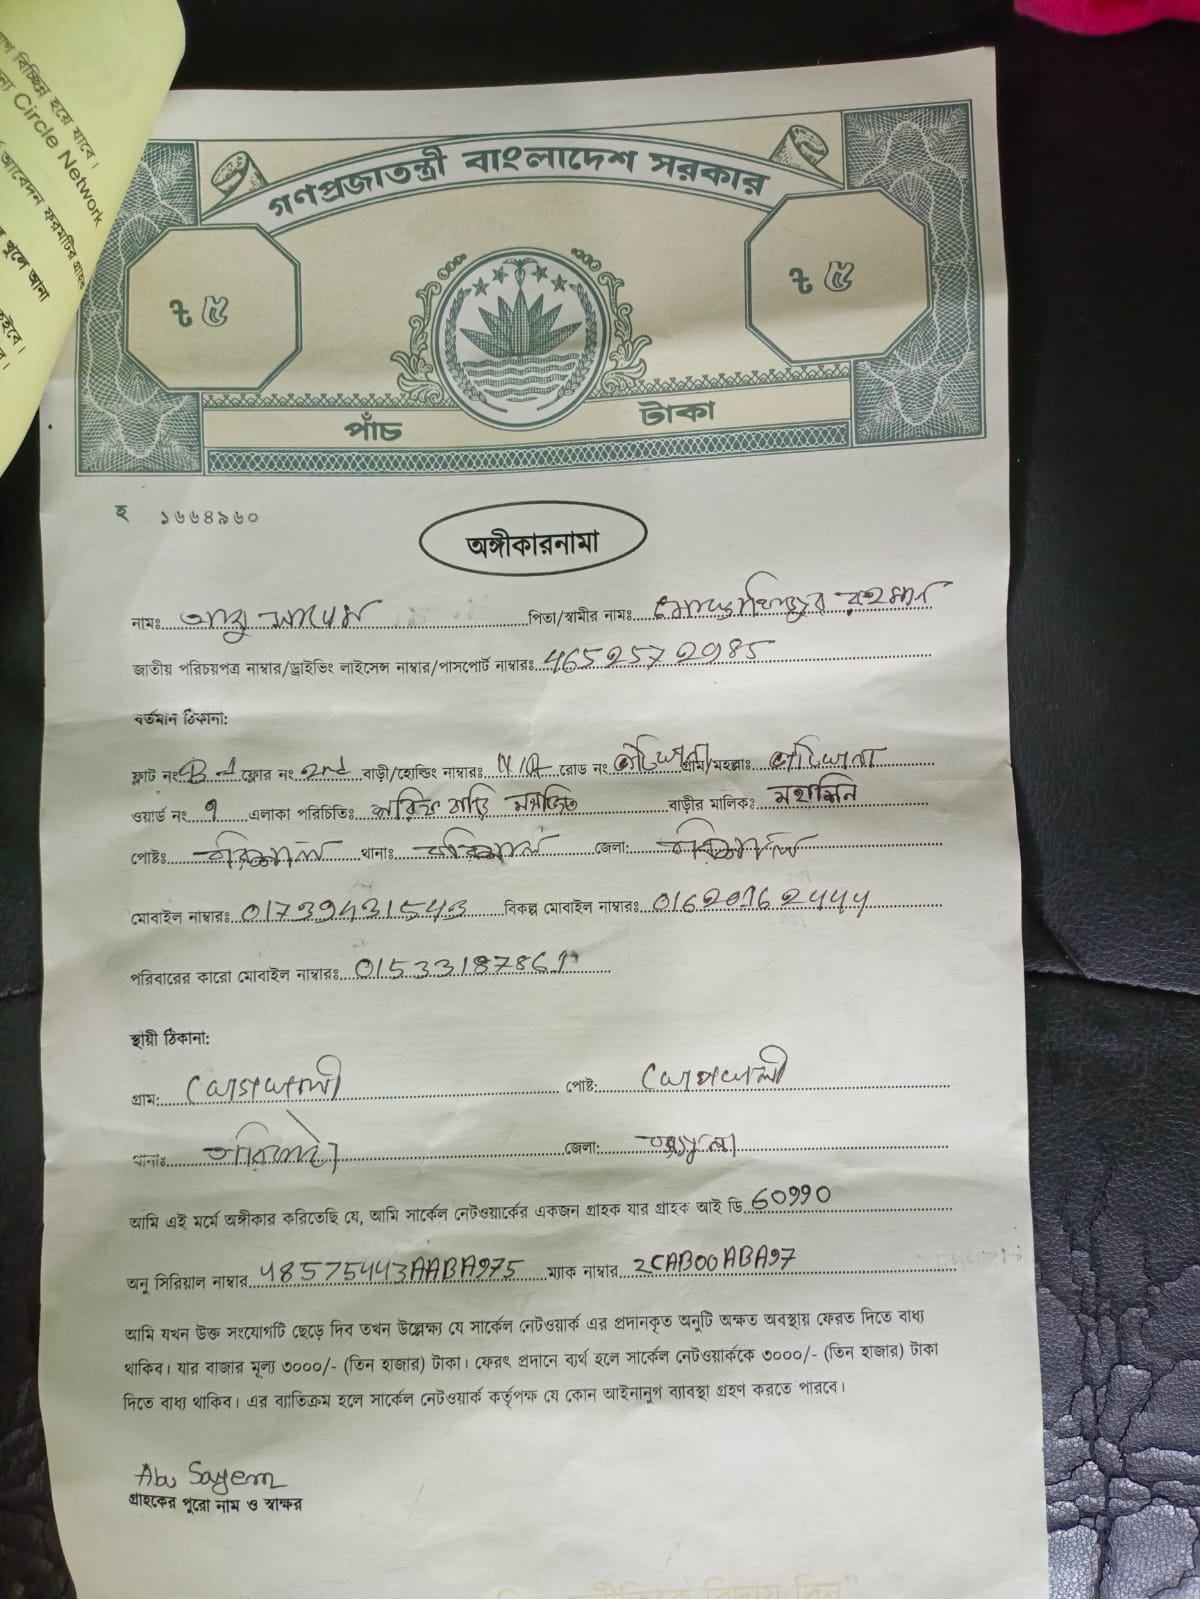 বিচ্ছিন্ন হয়ে যাবে।
Circle Network
আবেদন ফরমটির
খুলে আনা
গণপ্রজাতন্ত্রী বাংলাদেশ সরকার
৳ ৫
৳ ৫
পাঁচ টাকা
হ ১৬৬৪৯৬০
অঙ্গীকারনামা
নামঃ আবু সায়েম পিতা/স্বামীর নামঃ রহমান
জাতীয় পরিচয়পত্র নাম্বার/ড্রাইভিং লাইসেন্স নাম্বার/পাসপোর্ট নাম্বারঃ 4652572985
বর্তমান ঠিকানা:
ফ্লাট নং B-1 ফ্লোর নং 2nd বাড়ী/হোল্ডিং নাম্বারঃ N/A রোড নং গ্রাম/মহল্লাঃ
ওয়ার্ড নং ৭ এলাকা পরিচিতিঃ বাড়ি মসজিদ বাড়ীর মালিকঃ মহাসিন
পোষ্টঃ বরিশাল থানাঃ বরিশাল জেলা: বরিশাল
মোবাইল নাম্বারঃ 01739431543 বিকল্প মোবাইল নাম্বারঃ
পরিবারের কারো মোবাইল নাম্বারঃ
স্থায়ী ঠিকানা:
গ্রাম: পোষ্ট:
থানাঃ জেলা:
আমি এই মর্মে অঙ্গীকার করিতেছি যে, আমি সার্কেল নেটওয়ার্কের একজন গ্রাহক যার গ্রাহক আই ডি 60990
অনু সিরিয়াল নাম্বার 48575443AABA975 ম্যাক নাম্বার 2CAB00ABA97
আমি যখন উক্ত সংযোগটি ছেড়ে দিব তখন উল্লেক্ষ্য যে সার্কেল নেটওয়ার্ক এর প্রদানকৃত অনুটি অক্ষত অবস্থায় ফেরত দিতে বাধ্য
থাকিব। যার বাজার মূল্য ৩০০০/- (তিন হাজার) টাকা। ফেরৎ প্রদানে ব্যর্থ হলে সার্কেল নেটওয়ার্ককে ৩০০০/- (তিন হাজার) টাকা
দিতে বাধ্য থাকিব। এর ব্যাতিক্রম হলে সার্কেল নেটওয়ার্ক কর্তৃপক্ষ যে কোন আইনানুগ ব্যাবস্থা গ্রহণ করতে পারবে।
Abu Sayem
গ্রাহকের পুরো নাম ও স্বাক্ষর